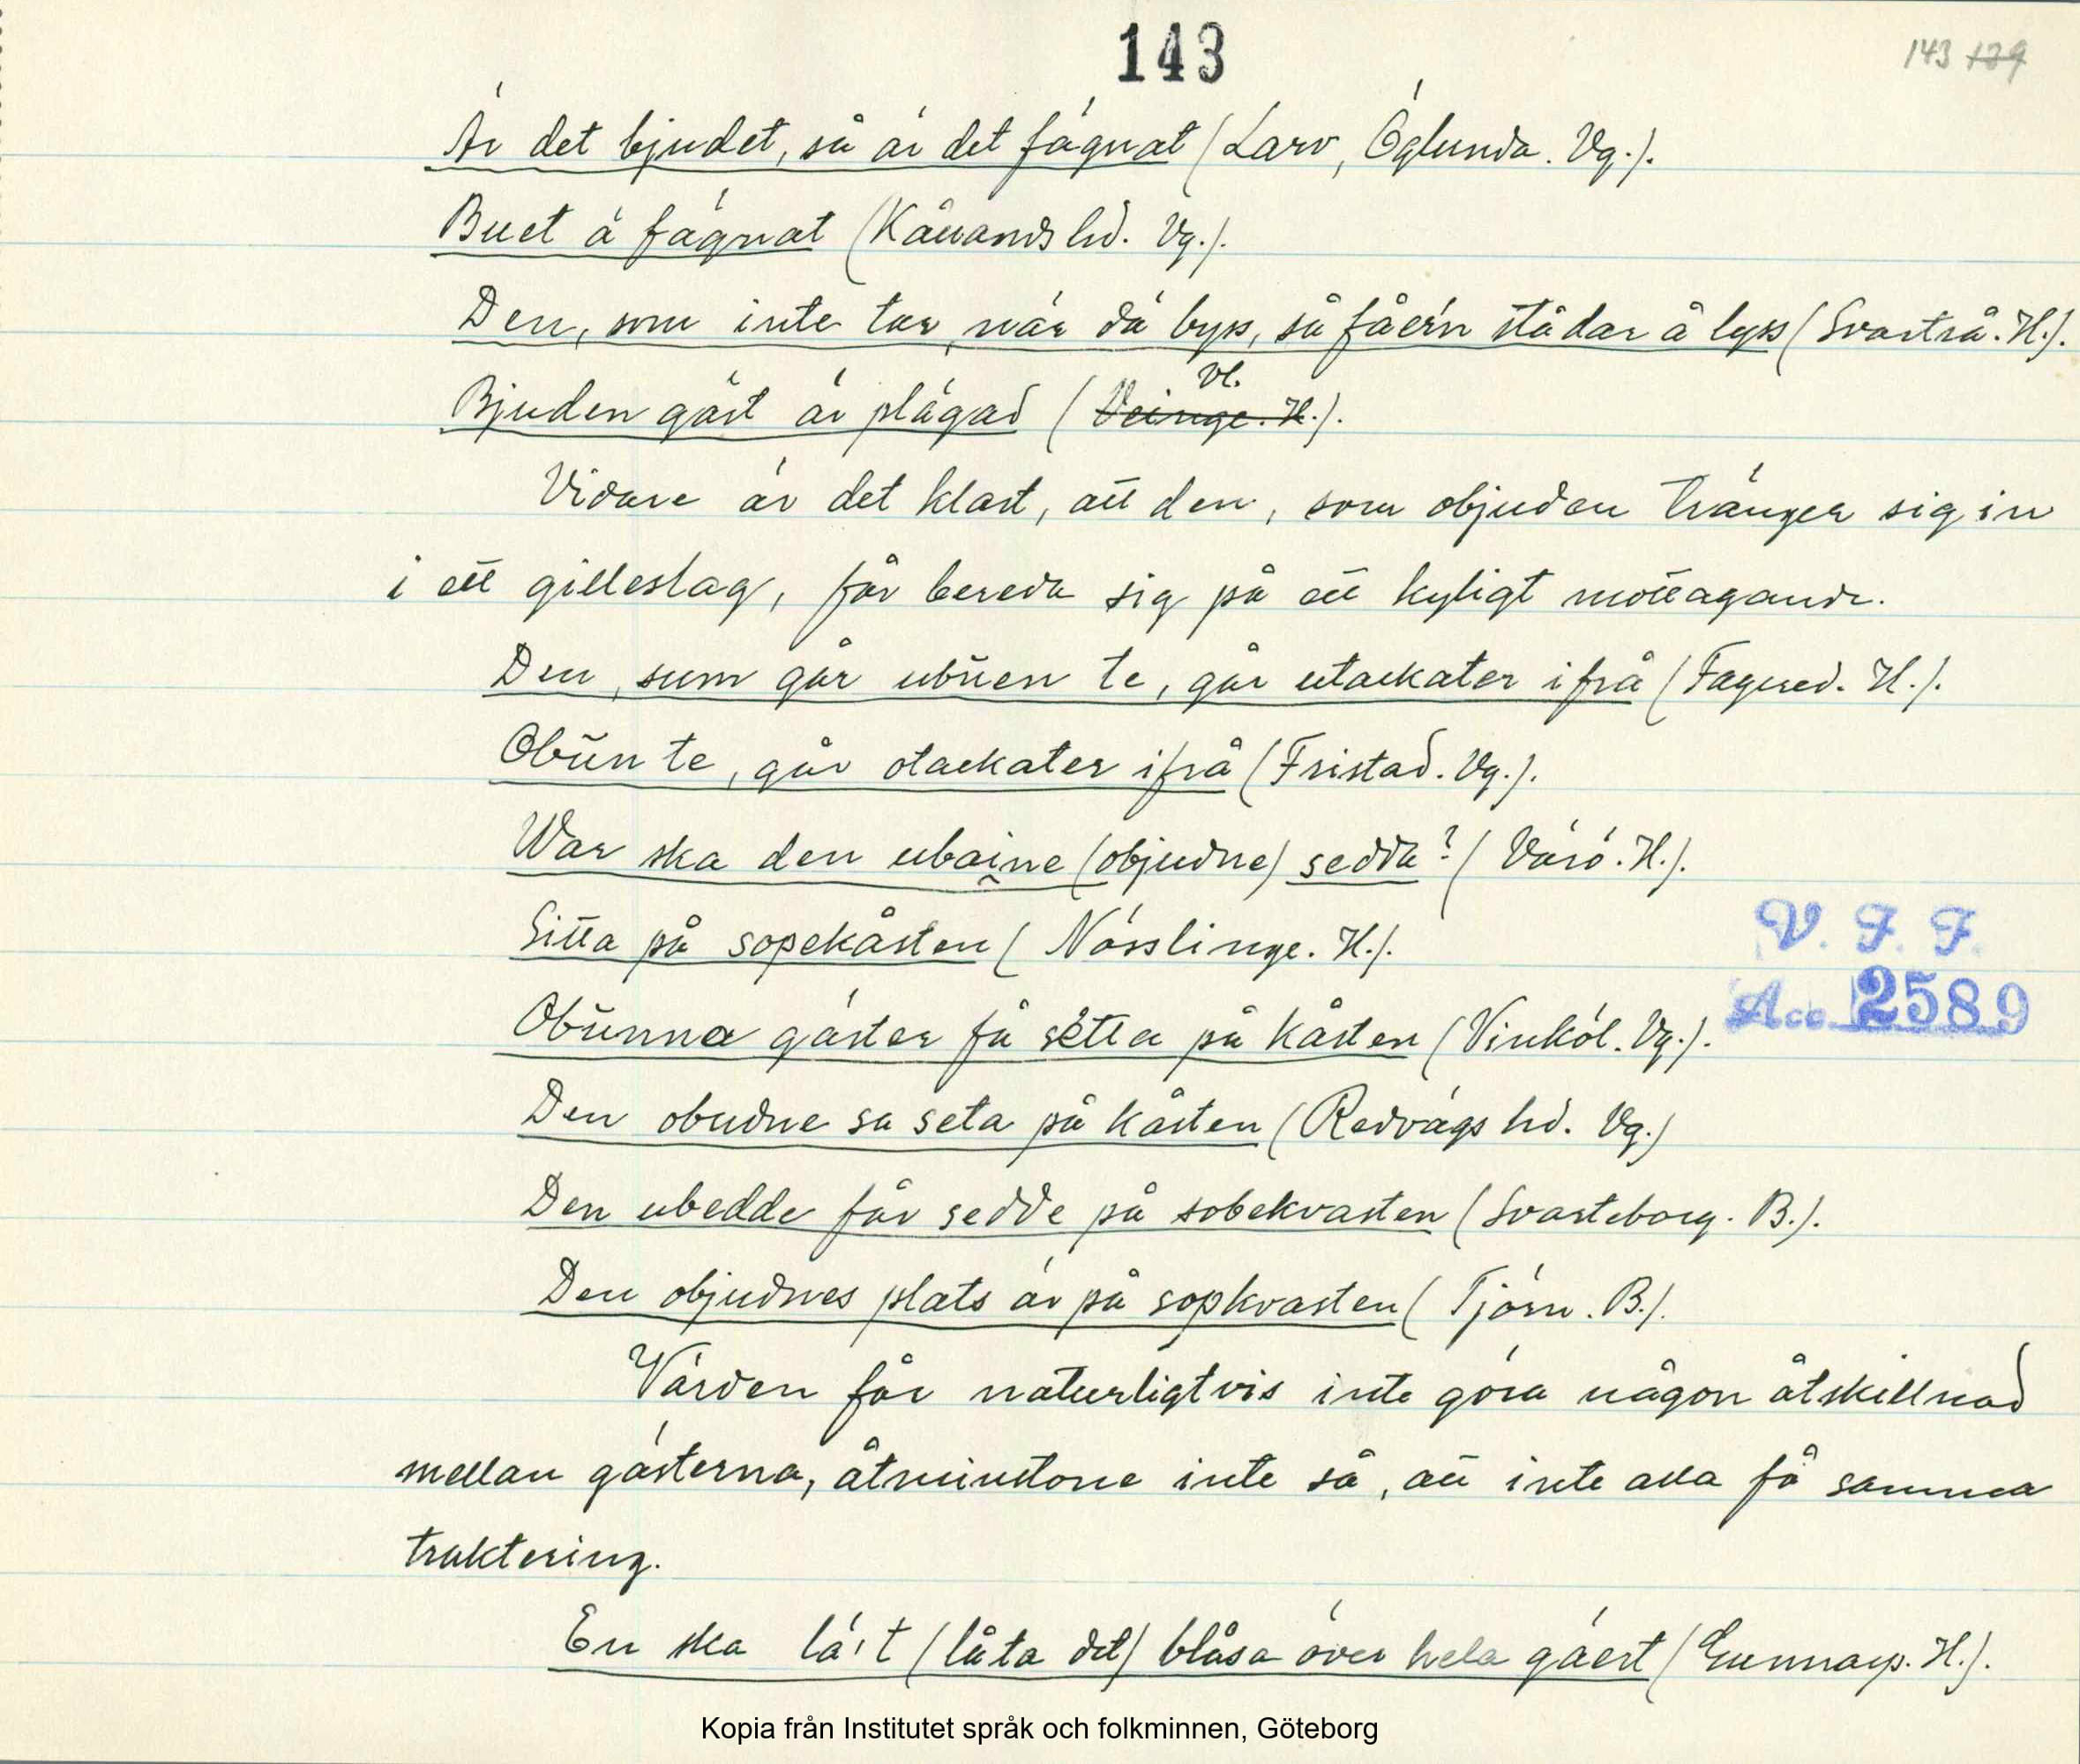 143
143 139
Är det bjudet, så är det fägnat (Larv, Öglunda. Vg.).
Buet ä fägnat (Kåkands hd. Vg.).
Den, som inte tar, när dä byss, så fåer'n städar å lyss (Svartrå. H.).
Vl.
Bjuden gäst är plägad (Veinge. H.).
Vidare är det klart, att den, som objuden tränger sig in
i ett gilleslag, får bereda sig på ett kyligt mottagande.
Den, sum går ubūen te, går utackater ifrå (Fagered. H.).
Obūn te, går otackater ifrå (Fristad. Vg.).
War ska den ubaine (objudne) sedda? (Värö. H.).
Sitta på sopekåsten (Nösslinge. H.).
V. F. F.
Acc. 2589
Obūnna gäster få sètta på kåsten (Vinköl. Vg.).
Den obudne sa seta på kåsten (Redvägs hd. Vg.)
Den ubedde får sedde på sobekvasten (Svarteborg. B.).
Den objudnes plats är på sopkvasten (Tjörn. B.).
Värden får naturligtvis inte göra någon åtskillnad
mellan gästerna, åtminstone inte så, att inte alla få samma
traktering.
En ska lä't (låta det) blåsa över hela gäert (Gunnarp. H.).
Kopia från Institutet språk och folkminnen, Göteborg